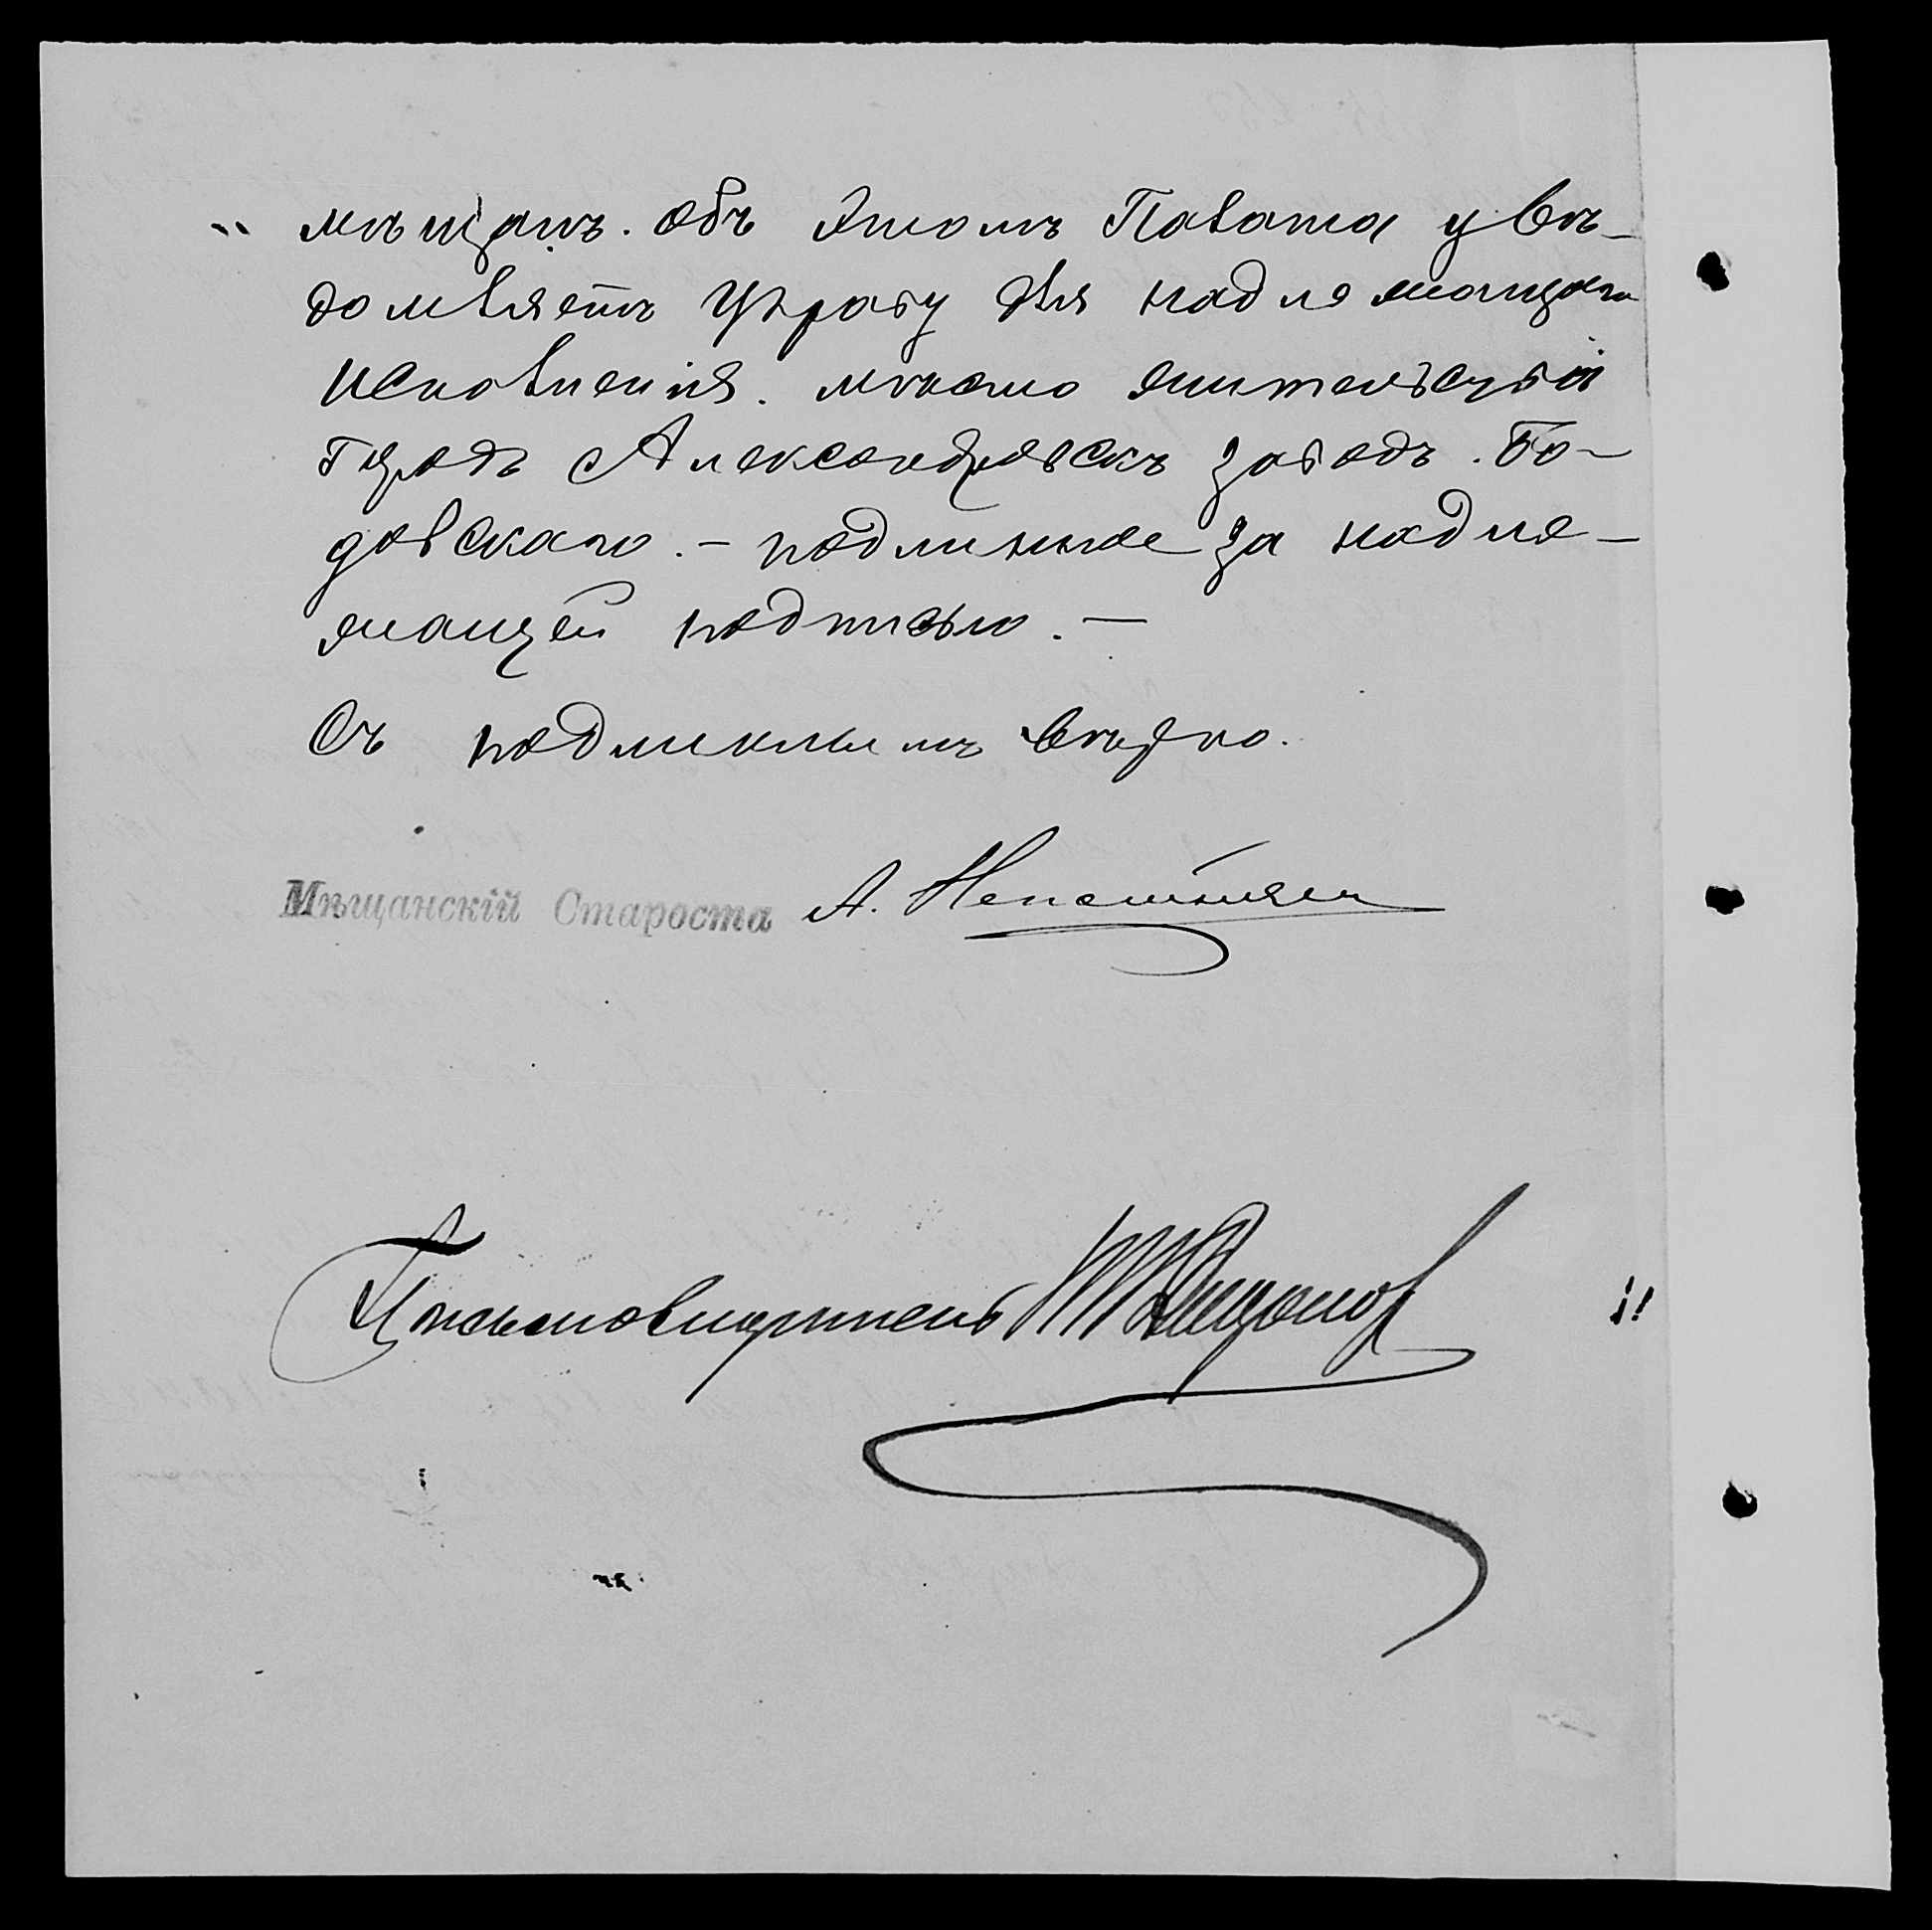 мѣщанъ. Объ этомъ Палата увѣ-
домляетъ Управу для надлежащаго
исполненія. мѣсто жительства
городъ Александровскъ заводъ. Бо-
довскаго. – подлинное за надле-
жащей подписью. –
Съ подлиннымъ вѣрно.
Мѣщанскій Староста А.
Письмоводитель